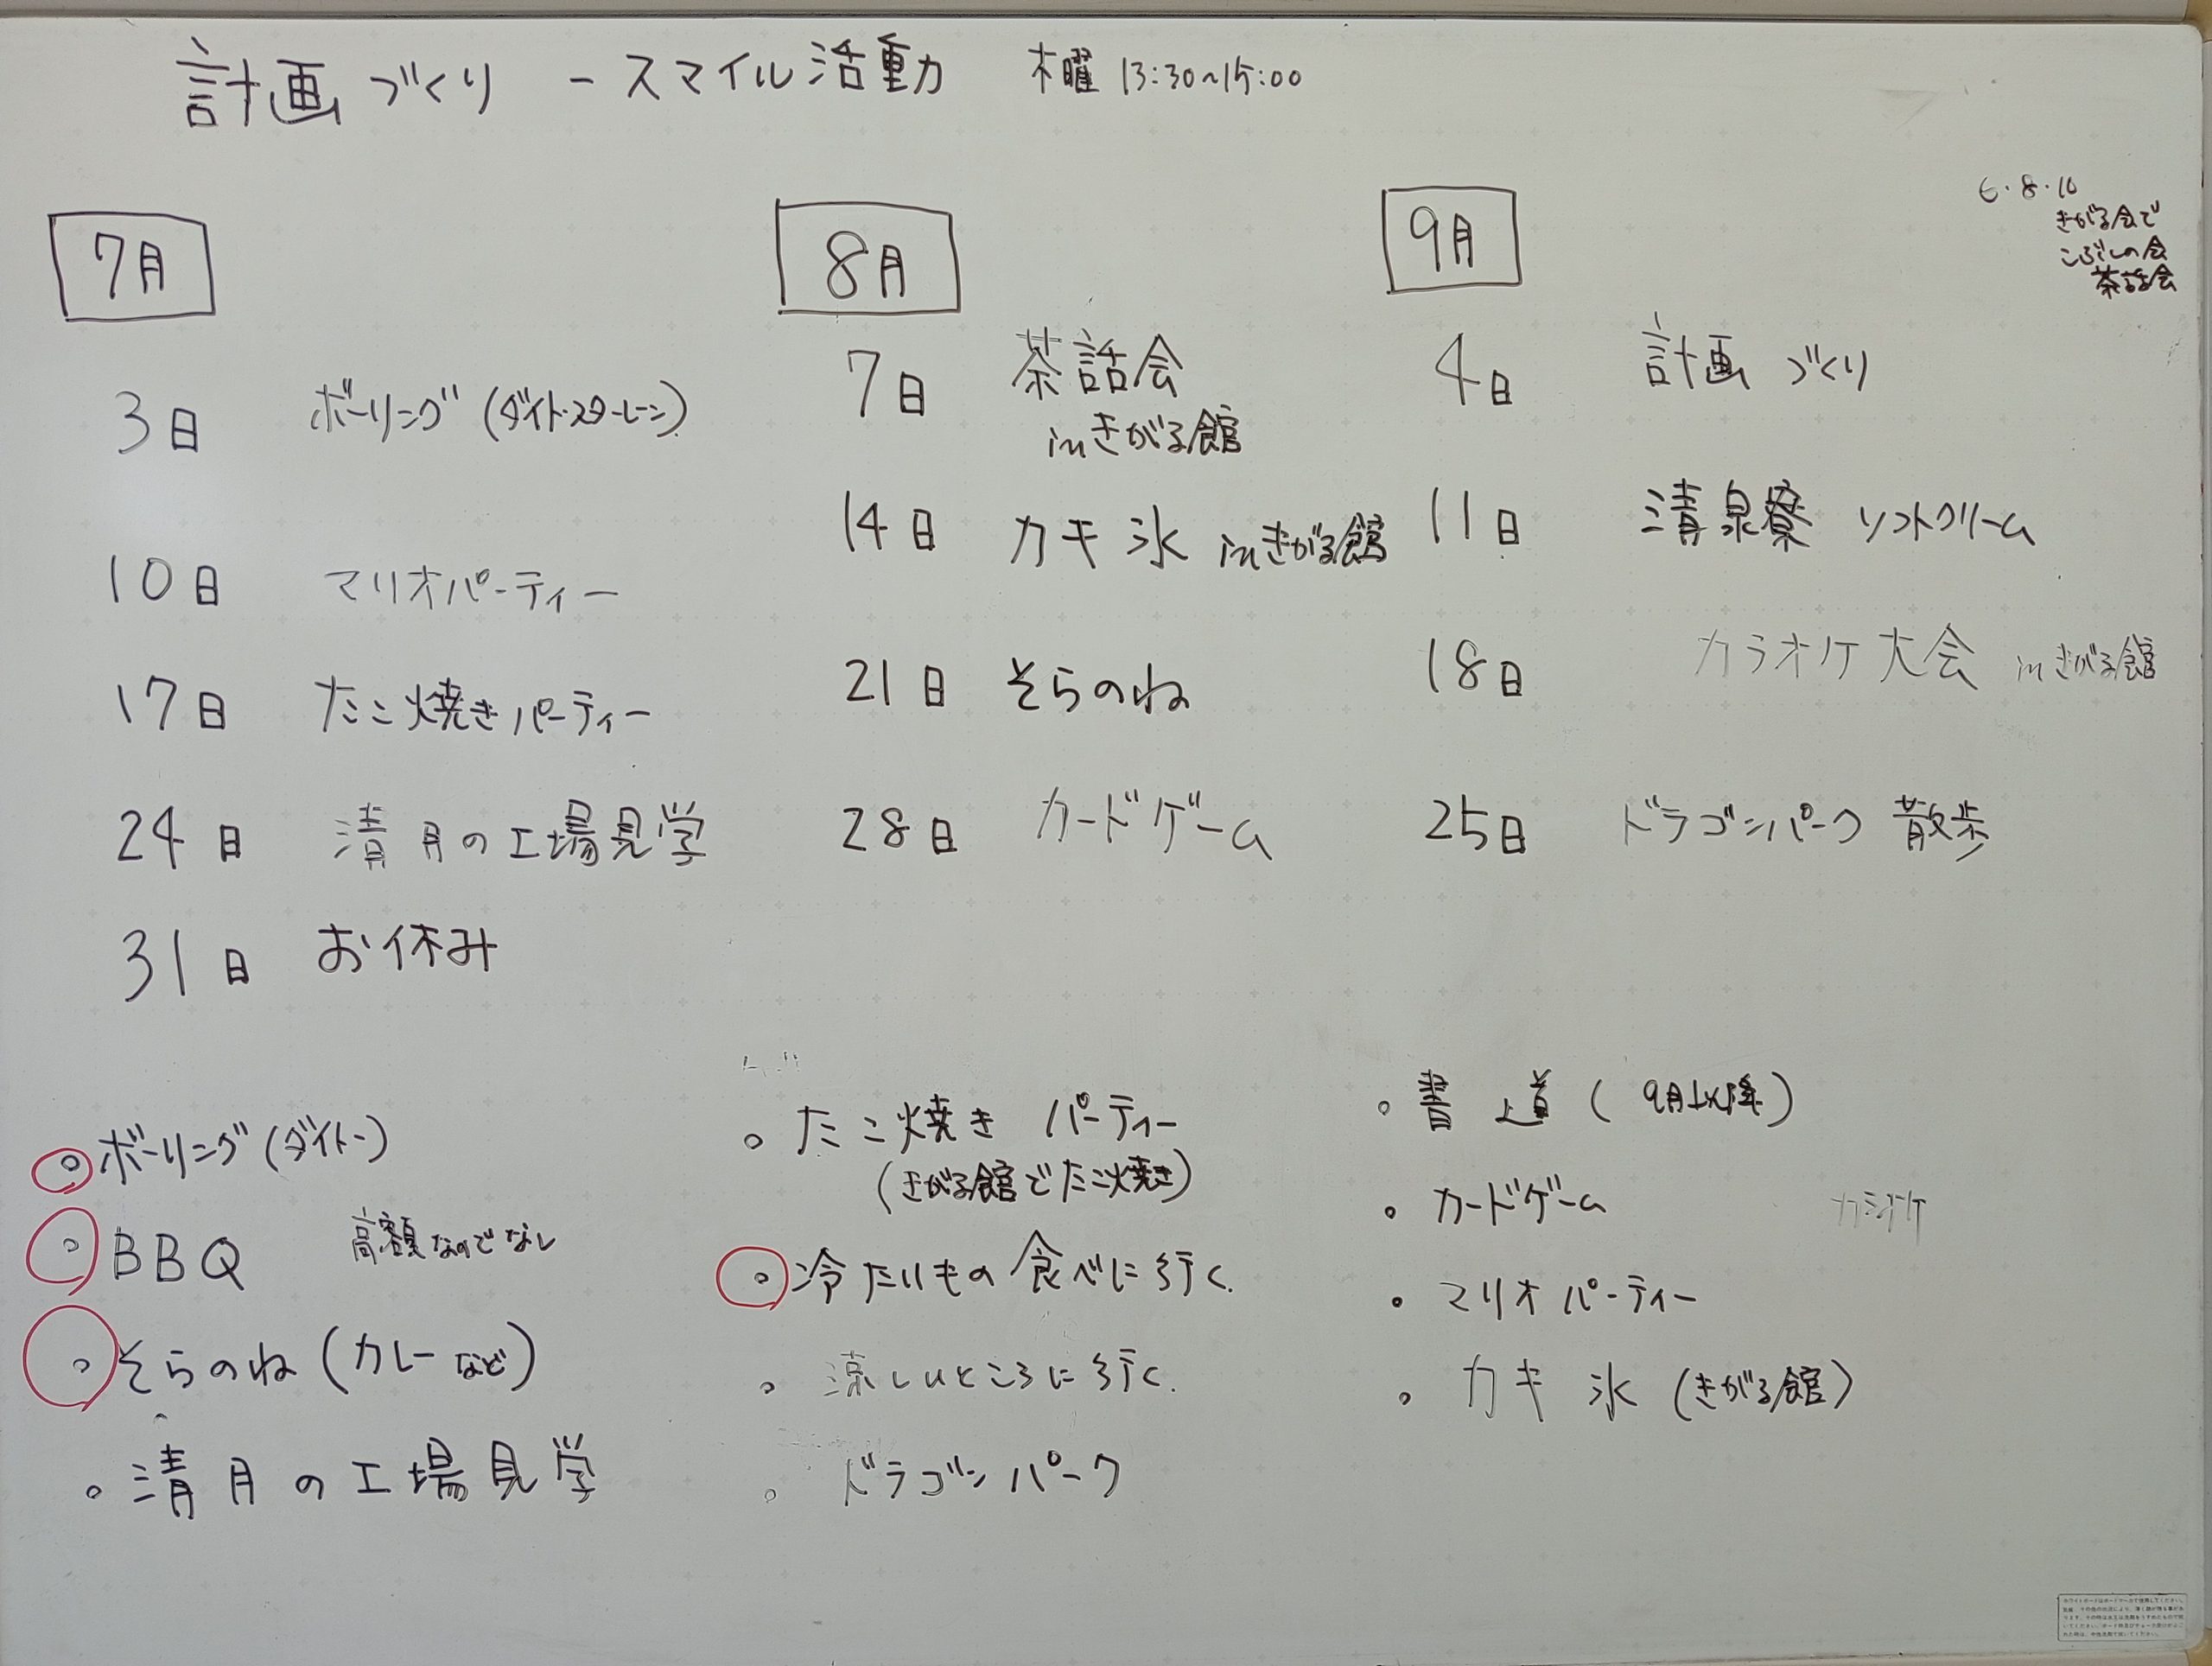 計画づくり － スマイル活動 木曜 13:30～15:00
6・8・10
きがる会で
こぶしの会
茶話会
7月
3日 ボーリング（ダイト・スターレーン）
10日 マリオパーティー
17日 たこ焼きパーティー
24日 清月の工場見学
31日 お休み
8月
7日 茶話会
inきがる館
14日 カキ氷 inきがる館
21日 そらのね
28日 カードゲーム
9月
4日 計画づくり
11日 清泉寮 ソフトクリーム
18日 カラオケ大会 inきがる館
25日 ドラゴンパーク 散歩
。ボーリング（ダイトー）
。BBQ 高額なのでなし
。そらのね（カレーなど）
。清月の工場見学
。たこ焼き パーティー
（きがる館でたこ焼き）
。冷たいもの食べに行く．
。涼しいところに行く．
。ドラゴンパーク
。書道（9月以降）
。カードゲーム
カラオケ
・マリオパーティー
。カキ氷（きがる館）